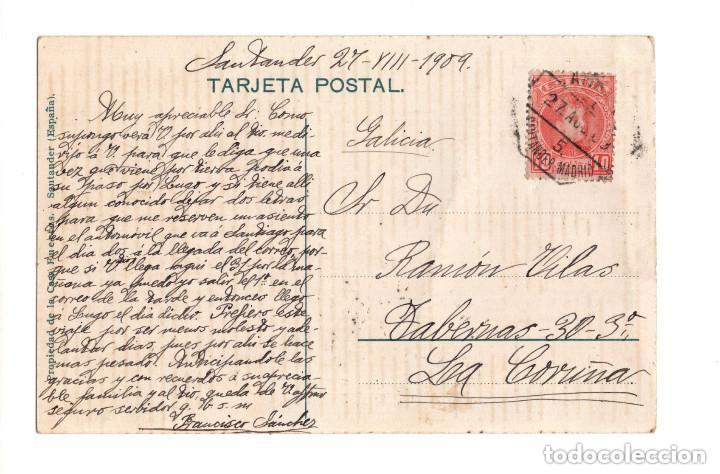 Santander 27-VIII-1909.
TARJETA POSTAL.
Propiedad de la Casa Fuertes. Santander (España).
Muy apreciable Sr. Como
supongo verá V. por ahí al tío. me di-
vijo á V. para que le diga que una
vez que viene por tierra podía á
su paso por Lugo y si tiene allí
algun conocido dejar dos letras
para que me reserven un asiento
en el automóvil que va á Santiago para
el día dos á la llegada del correo, por-
que si V. llega aquí el 31 por la ma-
ñana ya puedo yo salir el 1º en el
correo de la tarde y entonces llego
á Lugo el día dicho. Prefiero este
viaje por ser menos molesto y ade-
lantar dias, pues por ahí se hace
mas pesado. Anticipandole las
gracias y con recuerdos á su aprecia-
ble familia y al tío. queda de V. affmo
seguro servidor q. b. s. m
Francisco Sánchez
Galicia
Sr Dn
Ramón Vilas
Tabernas-30-3º
La Coruña
27 AGO
5
SANTANDER-MADRID
todocoleccion